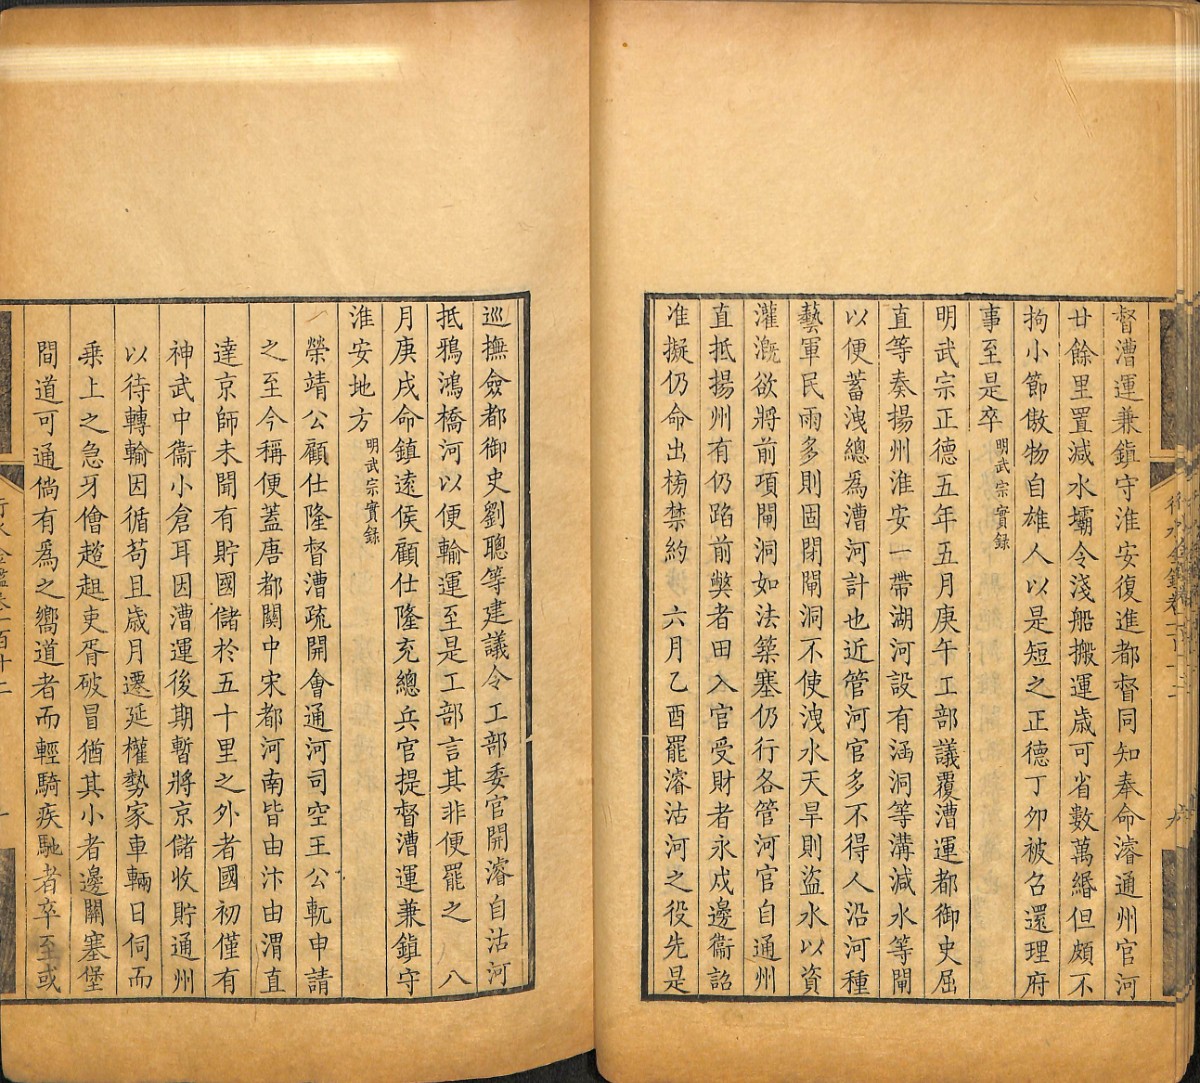 督漕運兼鎮守淮安復進都督同知奉命濬通州官河
廿餘里置減水壩令淺船搬運歲可省數萬緡但頗不
拘小節傲物自雄人以是短之正德丁卯被召還理府
事至是卒明武宗實錄
明武宗正德五年五月庚午工部議覆漕運都御史屈
直等奏揚州淮安一帶湖河設有涵洞等溝減水等閘
以便蓄洩總爲漕河計也近管河官多不得人沿河種
藝軍民雨多則固閉閘洞不使洩水天旱則盜水以資
灌漑欲將前項閘洞如法築塞仍行各管河官自通州
直抵揚州有仍蹈前獘者田入官受財者永戍邊衞詔
准擬仍命出榜禁約 六月乙酉罷濬沽河之役先是
巡撫僉都御史劉聰等建議令工部委官開濬自沽河
抵鴉鴻橋河以便輸運至是工部言其非便罷之 八
月庚戌命鎮遠侯顧仕隆充總兵官提督漕運兼鎮守
淮安地方明武宗實錄
榮靖公顧仕隆督漕疏開會通河司空王公軏申請
之至今稱便蓋唐都關中宋都河南皆由汴由渭直
達京師未聞有貯國儲於五十里之外者國初僅有
神武中衞小倉耳因漕運後期暫將京儲收貯通州
以待轉輸因循苟且歲月遷延權勢家車輛日伺而
乘上之急牙儈趦趄吏胥破冒猶其小者邊關塞堡
間道可通倘有爲之嚮道者而輕騎疾馳者卒至或
行水金鑑卷一百十二